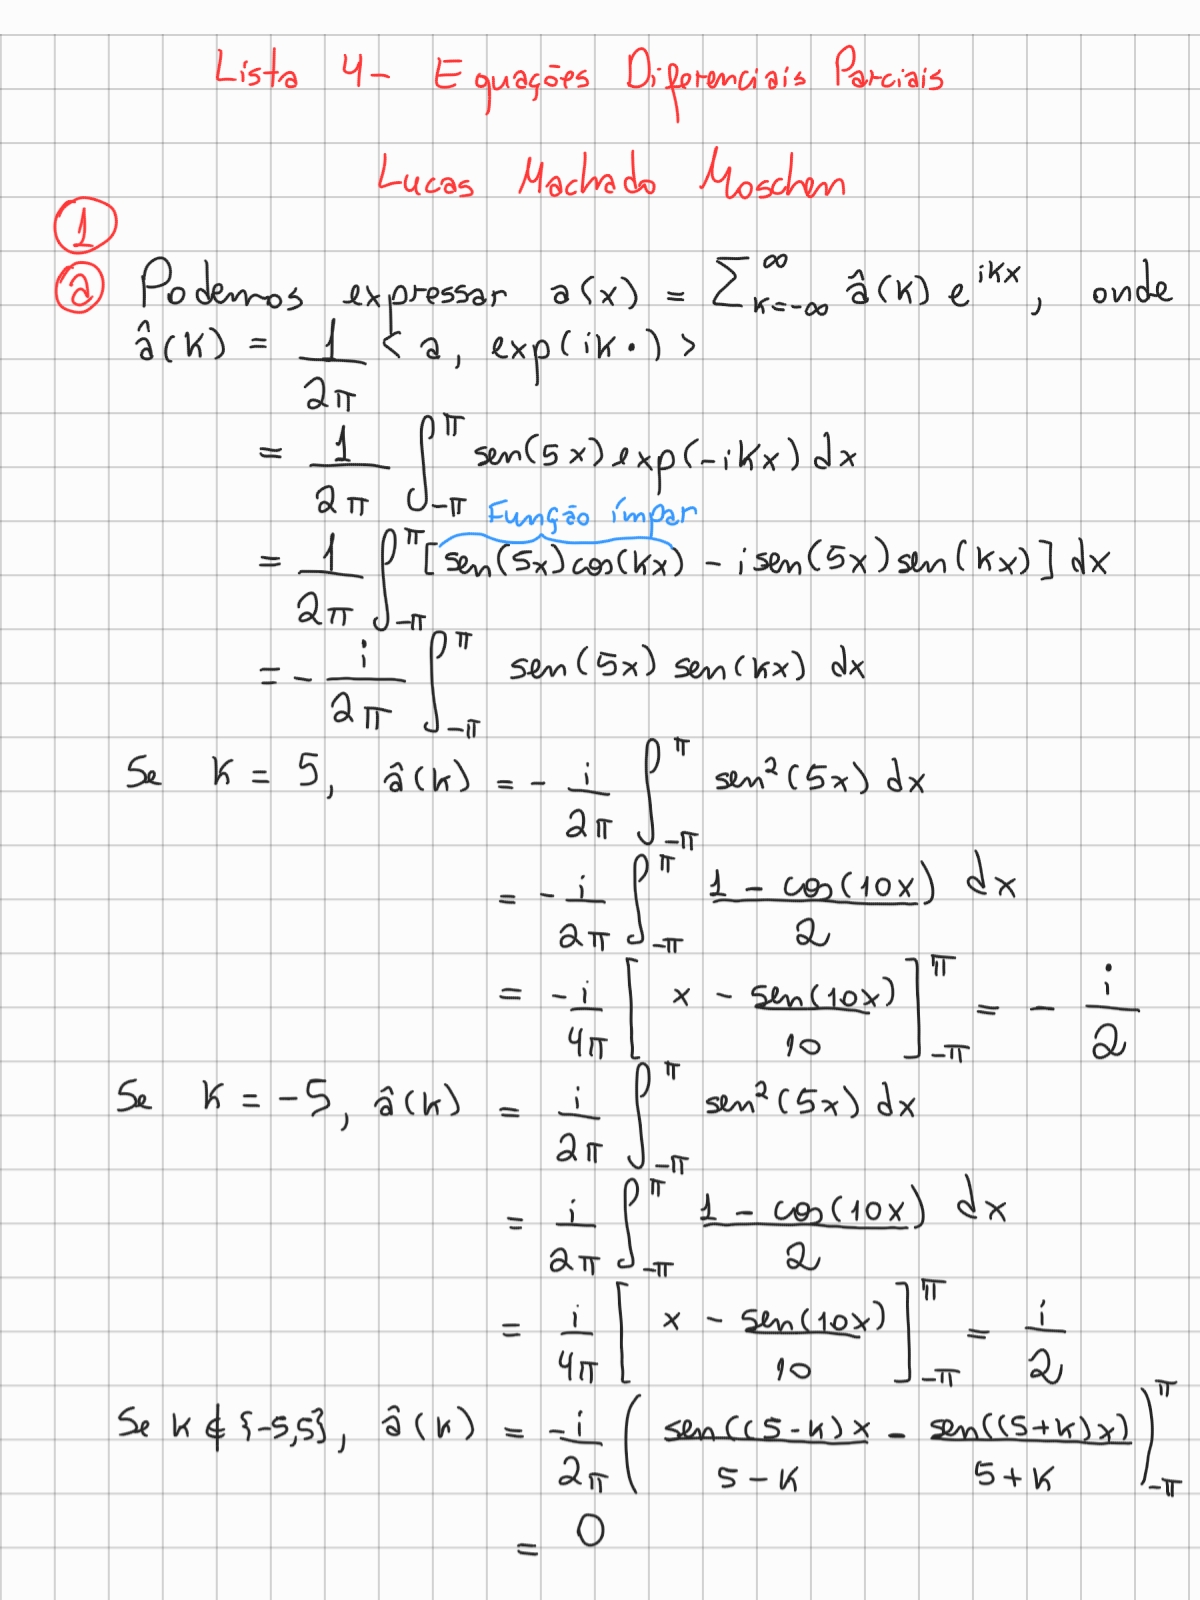 Lista 4 - Equações Diferenciais Parciais
Lucas Machado Moschen
1
a Podemos expressar a(x) = ∑_{k=-∞}^{∞} â(k) e^{ikx}, onde
â(k) = 1/2π < a, exp(ik·) >
= 1/2π ∫_{-π}^{π} sen(5x) exp(-ikx) dx
Função ímpar
= 1/2π ∫_{-π}^{π} [sen(5x)cos(kx) - i sen(5x) sen(kx)] dx
= - i/2π ∫_{-π}^{π} sen(5x) sen(kx) dx
Se k = 5, â(k) = - i/2π ∫_{-π}^{π} sen²(5x) dx
= - i/2π ∫_{-π}^{π} (1 - cos(10x))/2 dx
= -i/4π [x - sen(10x)/10]_{-π}^{π} = - i/2
Se k = -5, â(k) = i/2π ∫_{-π}^{π} sen²(5x) dx
= i/2π ∫_{-π}^{π} (1 - cos(10x))/2 dx
= i/4π [x - sen(10x)/10]_{-π}^{π} = i/2
Se k ∉ {-5,5}, â(k) = -i/2π (sen((5-k)x/5-k - sen((5+k)x)/5+k)_{-π}^{π}
= 0